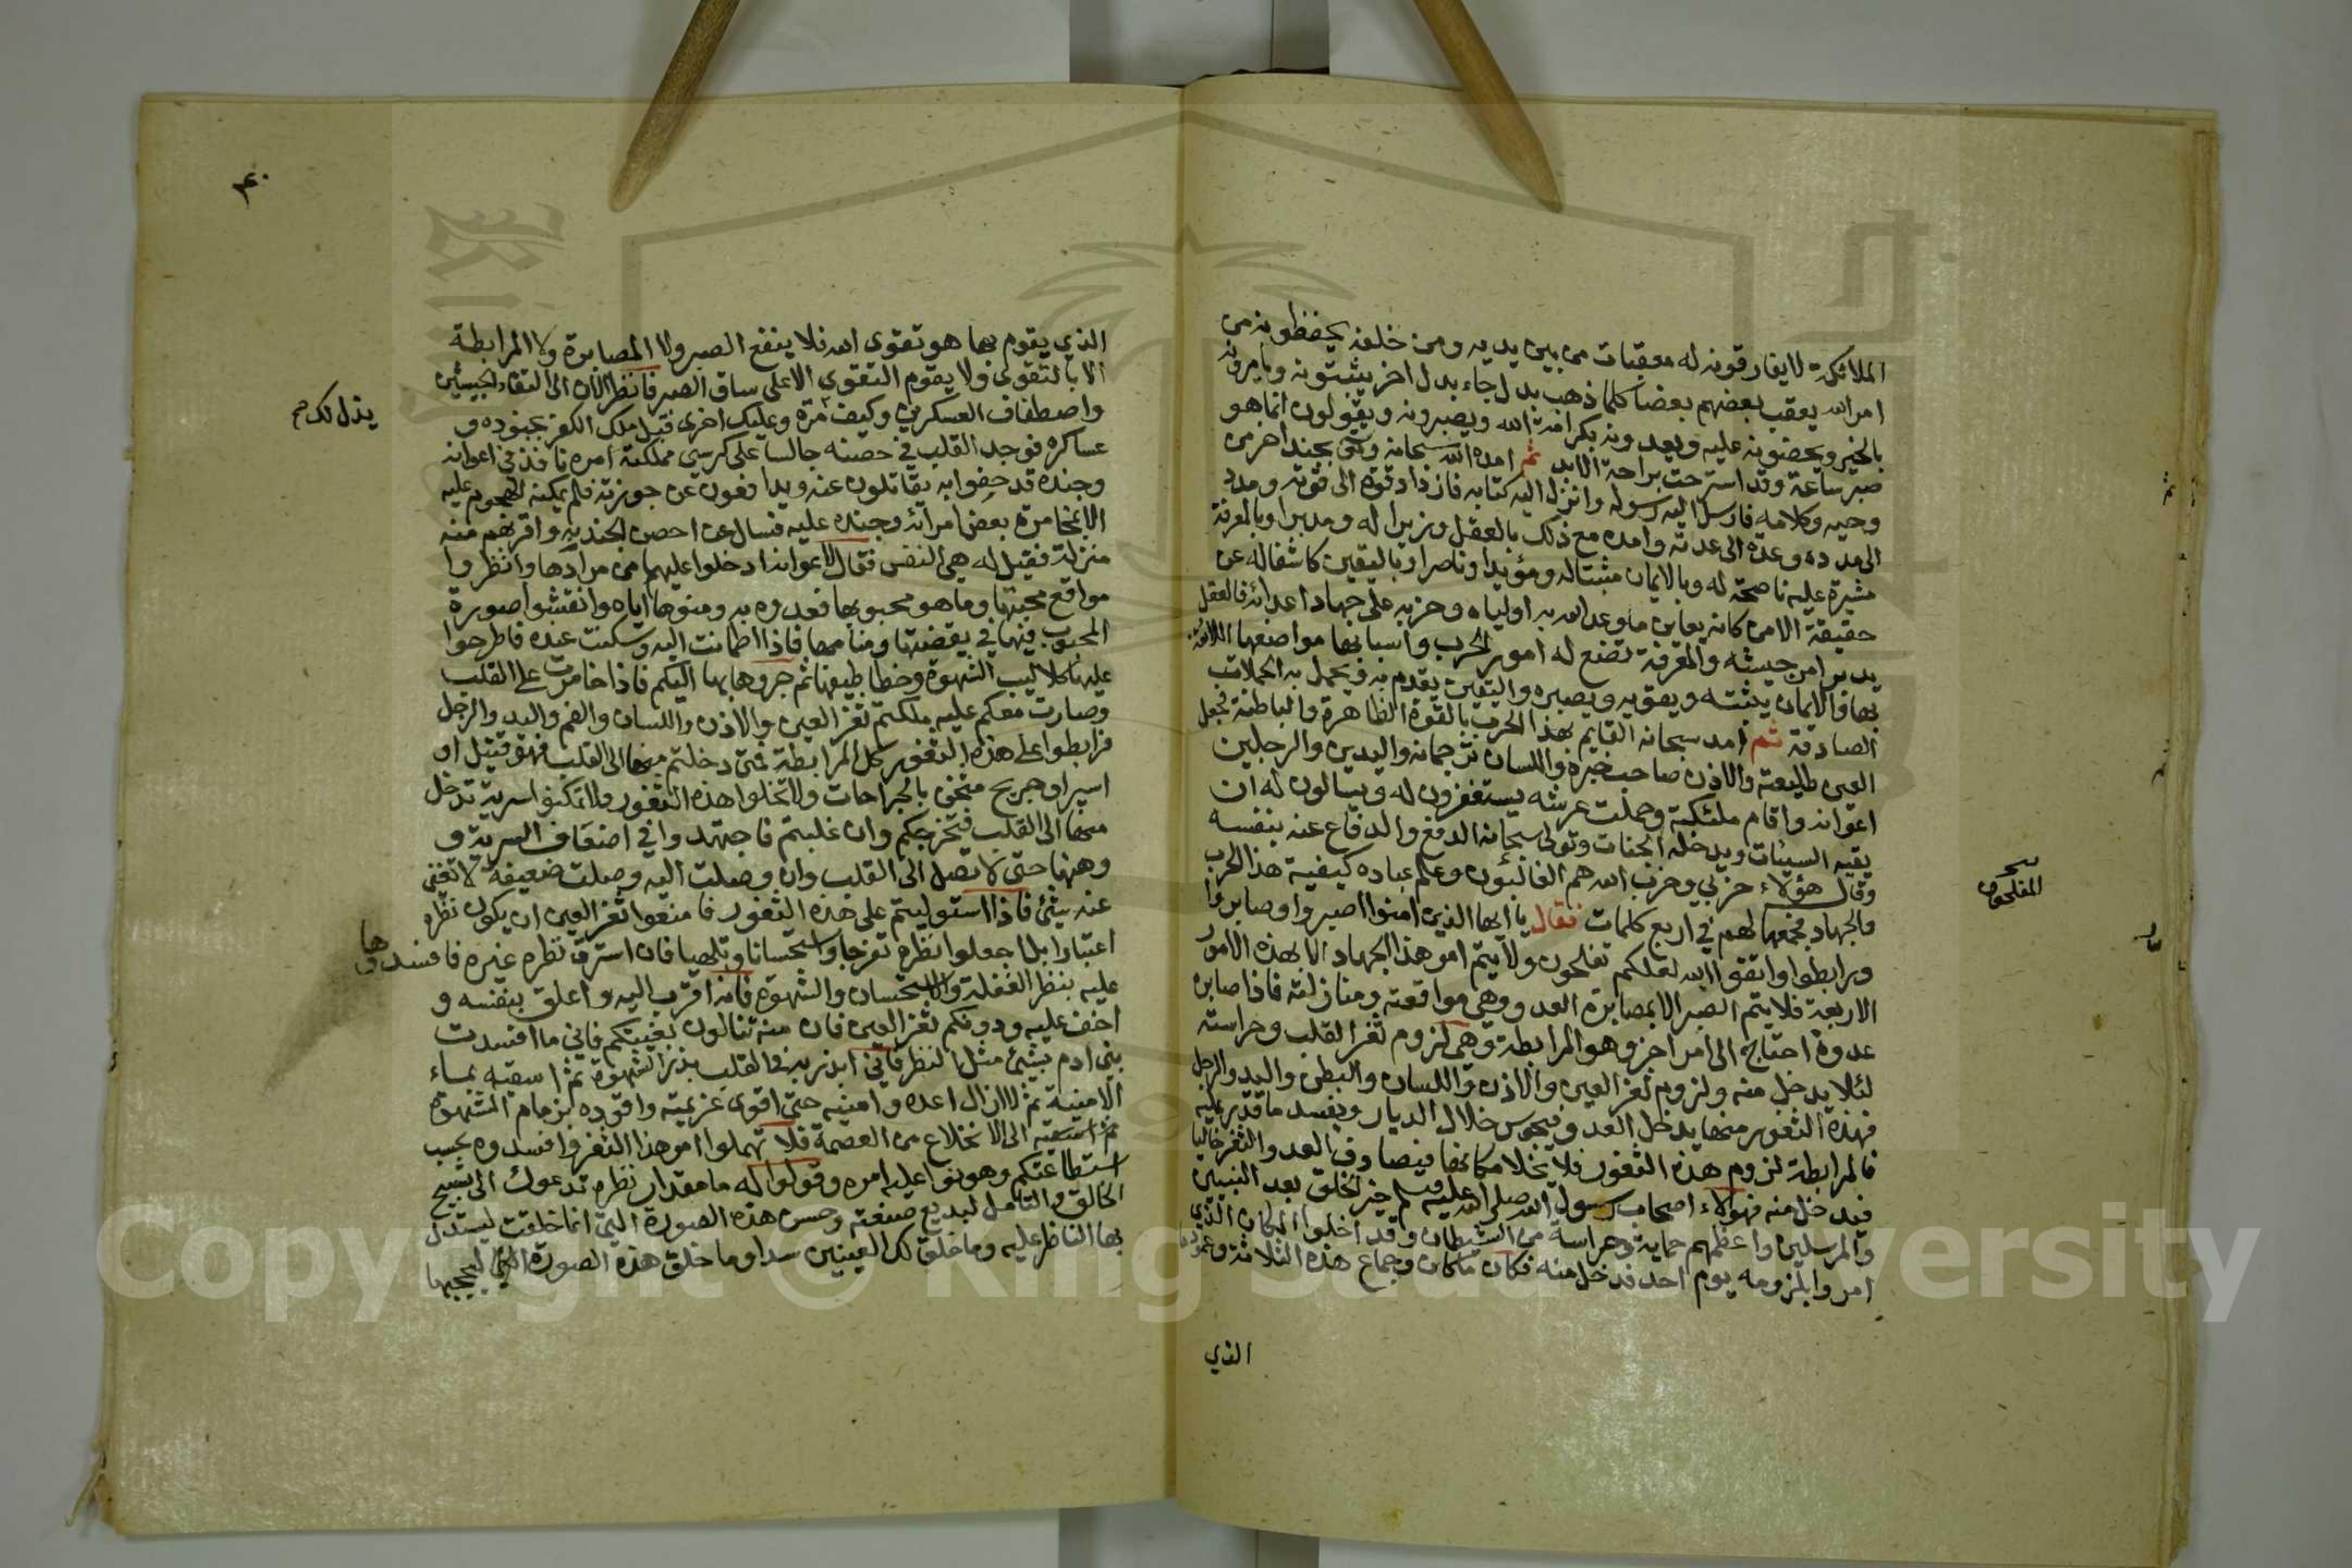 الملائكة لا يفارقونه له معقبات من بين يديه ومن خلفه يحفظونه من
امر الله يعقب بعضهم بعضا كلما ذهب بدل جاء بدل اخر يثبتونه ويامرونه
بالخير ويحضونه عليه ويعدونه بكرامة الله ويصبرونه ويقولون انما هو
صبر ساعة وقد استرحت براحة الابد ثم امده الله سبحانه وتعالى بجند اخر من
وحيه وكلامه فارسل اليه رسوله وانزل اليه كتابه فازداد قوة الى قوته ومدد
الى مدده وعدة الى عدته وامده مع ذلك بالعقل وزيرا له ومدبرا وبالمعرفة
مشيرة عليه ناصحة له وبالايمان مثبتا له ومؤيدا وناصرا وباليقين كاشفا له عن
حقيقة الامر كانه يعاين ما وعد الله به اولياه وحزبه على جهاد اعدائه فالعقل
يدبر امر جيشه والمعرفة تصنع له امور الحرب واسبابها مواضعها اللائقة
بها والايمان يثبته ويقويه ويصبره واليقين يقدم به ويحمل به الحملات
الصادقة ثم امد سبحانه القايم بهذا الحرب بالقوة الظاهرة والباطنة فجعل
العين طليعة والاذن صاحب خبره واللسان ترجمانه واليدين والرجلين
اعوانه واقام ملئكته وحملت عرشه يستغفرون له ويسالون له ان
يقيه السيئات ويدخله الجنات وتولى سبحانه الدفع والدفاع عنه بنفسه
وقال هؤلاء حزبي وحزب الله هم الغالبون وعلم عباده كيفية هذا الحرب
المفلحون
والجهاد فجمعها لهم في اربع كلمات فقال يا ايها الذين امنوا اصبروا وصابروا
ورابطوا واتقوا الله لعلكم تفلحون ولا يتم امر هذا الجهاد الا بهذه الامور
الاربعة فلا يتم الصبر الا بمصابرة العدو وهي مواقعته ومنازلته فاذا صابر
عدوه احتاج الى امر اخر وهو المرابطة وهي لزوم ثغر القلب وحراسته
لئلا يدخل منه ولزوم ثغر العين والاذن واللسان والبطن واليد والرجل
فهذه الثغور منها يدخل العدو فيجوس خلال الديار ويفسد ما قدر عليه
فالمرابطة لزوم هذه الثغور فلا يخلا مكانها فيصادف العدو الثغر خاليا
فيدخل منه فهؤلاء اصحاب رسول الله صلى الله عليه وسلم خير الخلق بعد النبيين
والمرسلين واعظمهم حماية وحراسة من الشيطان وقد اخلوا المكان الذي
امروا بلزومه يوم احد فدخل منه فكان ما كان وجماع هذه الثلاثة وعمودها
الذي
٤٠
الذي يقوم بها هو تقوى الله فلا ينفع الصبر ولا المصابرة ولا المرابطة
الا بالتقوى ولا يقوم التقوى الا على ساق الصبر فانظر الان الى التقاء الجيشين
واصطفاف العسكرين وكيف مرة وعليك اخرى قبل ملك الكفر بجنوده و
يذل لك صح
عساكره فوجد القلب في حصنه جالسا على كرسي مملكته امره نافذ في اعوانه
وجنده قد حفوا به يقاتلون عنه ويدافعون عن حوزته فلم يمكنه الهجوم عليه
الا بمخامرة بعض امرائه وجنده عليه فسال عن احص الجند به واقربهم منه
منزلة فقيل له هي النفس فقال لاعوانه ادخلوا عليها من مرادها وانظروا
مواقع محبتها وما هو محبوبها فعدوه به ومنوها اياه وانقشوا صورة
المحبوب فيها في يقضتها ومنامها فاذا اطمانت اليه وسكنت عنده فاطرحوا
عليها كلاليب الشهوة وخطاطيفها ثم جروها بها اليكم فاذا خامرت على القلب
وصارت معكم عليه ملكتم ثغر العين والاذن واللسان والفم واليد والرجل
فرابطوا على هذه الثغور كل المرابطة فمتى دخلتم منها الى القلب فهو قتيل او
اسير او جريح مثخن بالجراحات ولا تخلوا هذه الثغور ولا تمكنوا سرية تدخل
منها الى القلب فتخرجكم وان غلبتم فاجتهدوا في اضعاف السرية و
وهنها حتى لا تصل الى القلب وان وصلت اليه وصلت ضعيفة لا تغني
عنه شئ فاذا استوليتم على هذه الثغور فامنعوا ثغر العين ان يكون نظره
اعتبارا بل اجعلوا نظره تفرجا واستحسانا وتلهيا فان استرق نظره عبره فافسدوها
عليه بنظر الغفلة والاستحسان والشهوة فانه اقرب اليه واعلق بنفسه و
اخف عليه ودونكم ثغر العين فان منه تنالون بغيتكم فاني ما افسدت
بني ادم بشئ مثل النظر فاني ابذر به في القلب بذر الشهوة ثم اسقيه بماء
الامنية ثم لا ازال اعده وامنيه حتى اقوى عزيمته واقوده بزمام الشهوة
الى الانخلاع من العصمة فلا تهملوا امر هذا الثغر وافسدوه بحسب
استطاعتكم وهونوا عليه امره وقولوا له ما مقدار نظره تدعوك الى تسبيح
الخالق والتامل لبديع صنعته وحسن هذه الصورة التي انما خلقت ليستدل
بها الناظر عليه وما خلق لك العينين سدا وما خلق هذه الصورة التي ليحجبها
Copyright © King Saud University